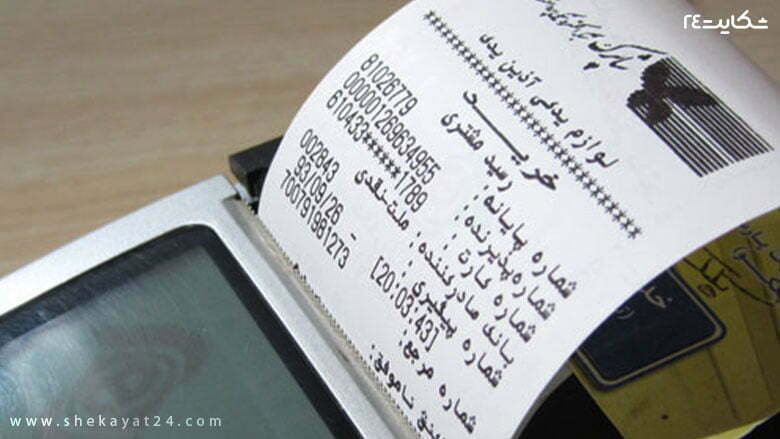 شکایت۲۴
لوازم یدکی آذین یدک
*****************************
خريـــد
رسید مشتری
شماره پایانه: 81026779
شماره پذیرنده: 000001269634955
شماره کارت: 610433******1789
بانک صادرکننده: ملت-نقدی
شماره پیگیری: 002843
[20:03:43] 93/09/26 -
شماره مرجع: 700791961273
ناموفق:
www.shekayat24.com